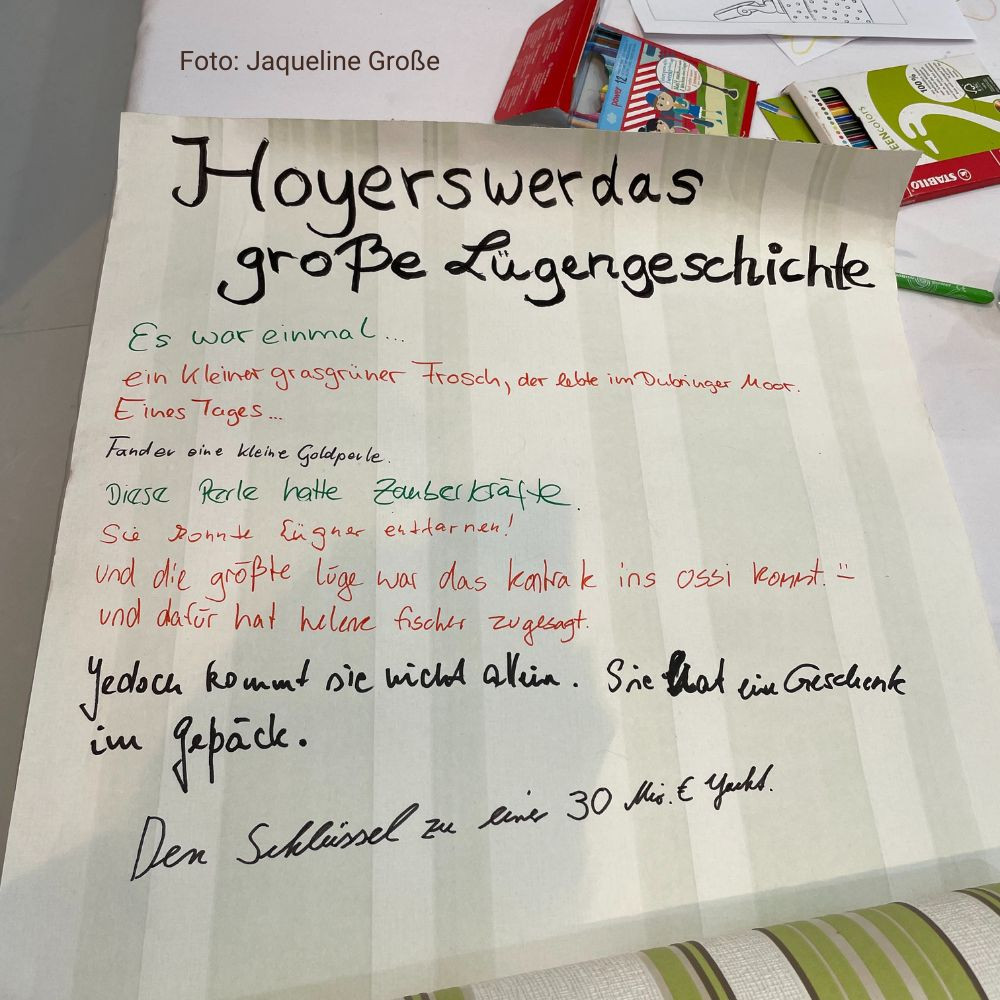 Foto: Jaqueline Große
12
100%
GREENcolors
STABILO
Hoyerswerdas
große Lügengeschichte
Es war einmal...
ein kleiner grasgrüner Frosch, der lebte im Dubringer Moor.
Eines Tages...
Fand er eine kleine Goldperle.
Diese Perle hatte Zauberkräfte.
Sie konnte Lügner enttarnen!
und die größte lüge war das kontra k ins ossi kommt. :-
und dafür hat helene fischer zugesagt.
Jedoch kommt sie nicht allein. Sie hat ein Geschenk
im Gepäck.
Den Schlüssel zu einer 30 Mio. € Yacht.